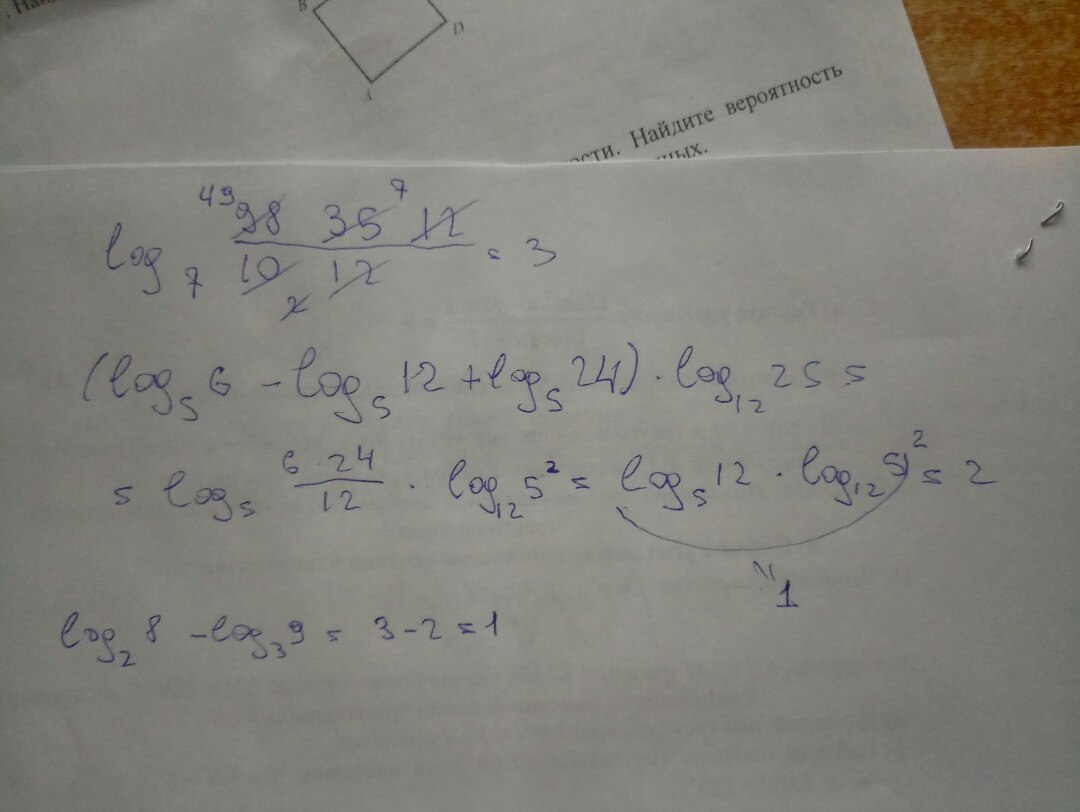 B
D
A
ости. Найдите вероятность
ных.
49 7
98 35 12
log₇ ――― = 3
10 12
2
(log₅6 - log₅12 + log₅24) · log₁₂25 =
= log₅ (6 · 24)/12 · log₁₂5² = log₅12 · log₁₂5² = 2
" 1
log₂8 - log₃9 = 3 - 2 = 1